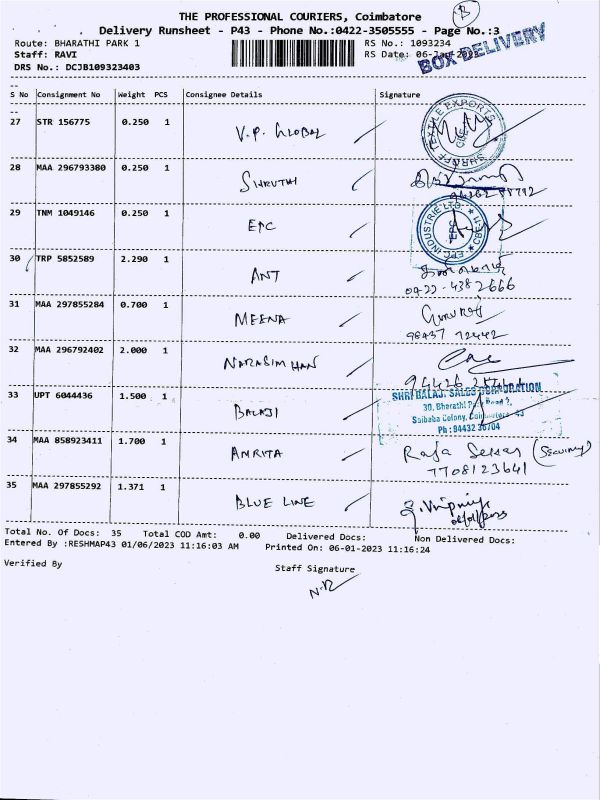 B
THE PROFESSIONAL COURIERS, Coimbatore
Delivery Runsheet - P43 - Phone No.:0422-3505555 - Page No.:3
Route: BHARATHI PARK 1
RS No.: 1093234
Staff: RAVI
RS Date: 06-Jan-202
BOX DELIVERY
DRS No.: DCJB109323403
--
S No Consignment No Weight PCS Consignee Details Signature
--
27 STR 156775 0.250 1 V.P. GLOBAL
SHROFF TEXTILE EXPORTS
28 MAA 296793380 0.250 1 SHRUTHI
29 TNM 1049146 0.250 1 EPC
EPC INDUSTRIE LTD.
EPC
30 TRP 5852589 2.290 1 ANT
0422-4382666
31 MAA 297855284 0.700 1 MEENA
98437 72442
32 MAA 296792402 2.000 1 NARASIMHAN
33 UPT 6044436 1.500 1 BALAJI
SHRI BALAJI SALES CORPORATION
30, Bharathi Park Road 2,
Saibaba Colony, Coimbatore - 43
Ph : 94432 30704
34 MAA 858923411 1.700 1 AMRITA Raja Sekar (Security)
7708123641
35 MAA 297855292 1.371 1 BLUE LINE
Total No. Of Docs: 35 Total COD Amt: 0.00 Delivered Docs: Non Delivered Docs:
Entered By :RESHMAP43 01/06/2023 11:16:03 AM Printed On: 06-01-2023 11:16:24
Verified By
Staff Signature